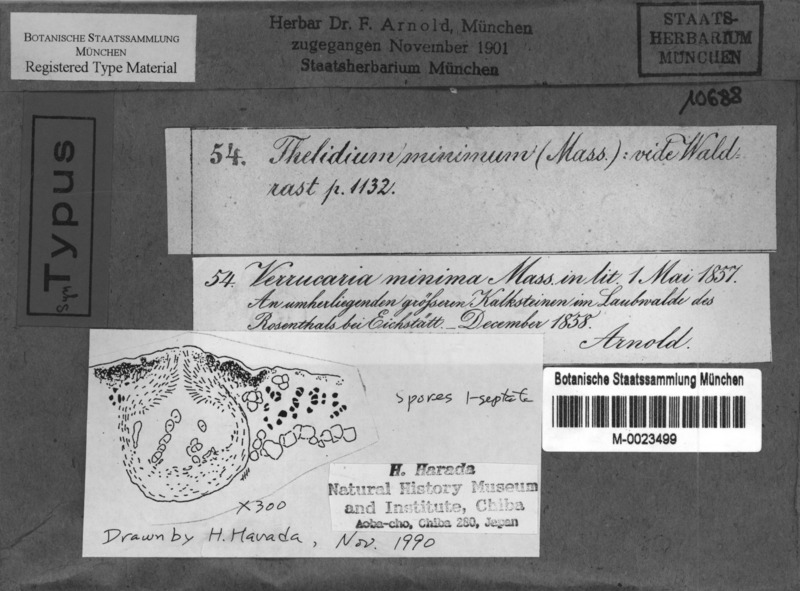 BOTANISCHE STAATSSAMMLUNG
MÜNCHEN
Registered Type Material
Herbar Dr. F. Arnold, München
zugegangen November 1901
Staatsherbarium München
STAATS-
HERBARIUM
MÜNCHEN
10688
Syn Typus
54. Thelidium minimum (Mass.): vide Wald=
rast p. 1132.
54. Verrucaria minima Mass. in lit. 1 Mai 1857.
An umherliegenden größeren Kalksteinen im Laubwalde des
Rosenthals bei Eichstätt. December 1858.
Arnold.
spores 1-septate
Botanische Staatssammlung München
M-0023499
H. Harada
Natural History Museum
and Institute, Chiba
Aoba-cho, Chiba 280, Japan
×300
Drawn by H. Harada, Nov. 1990